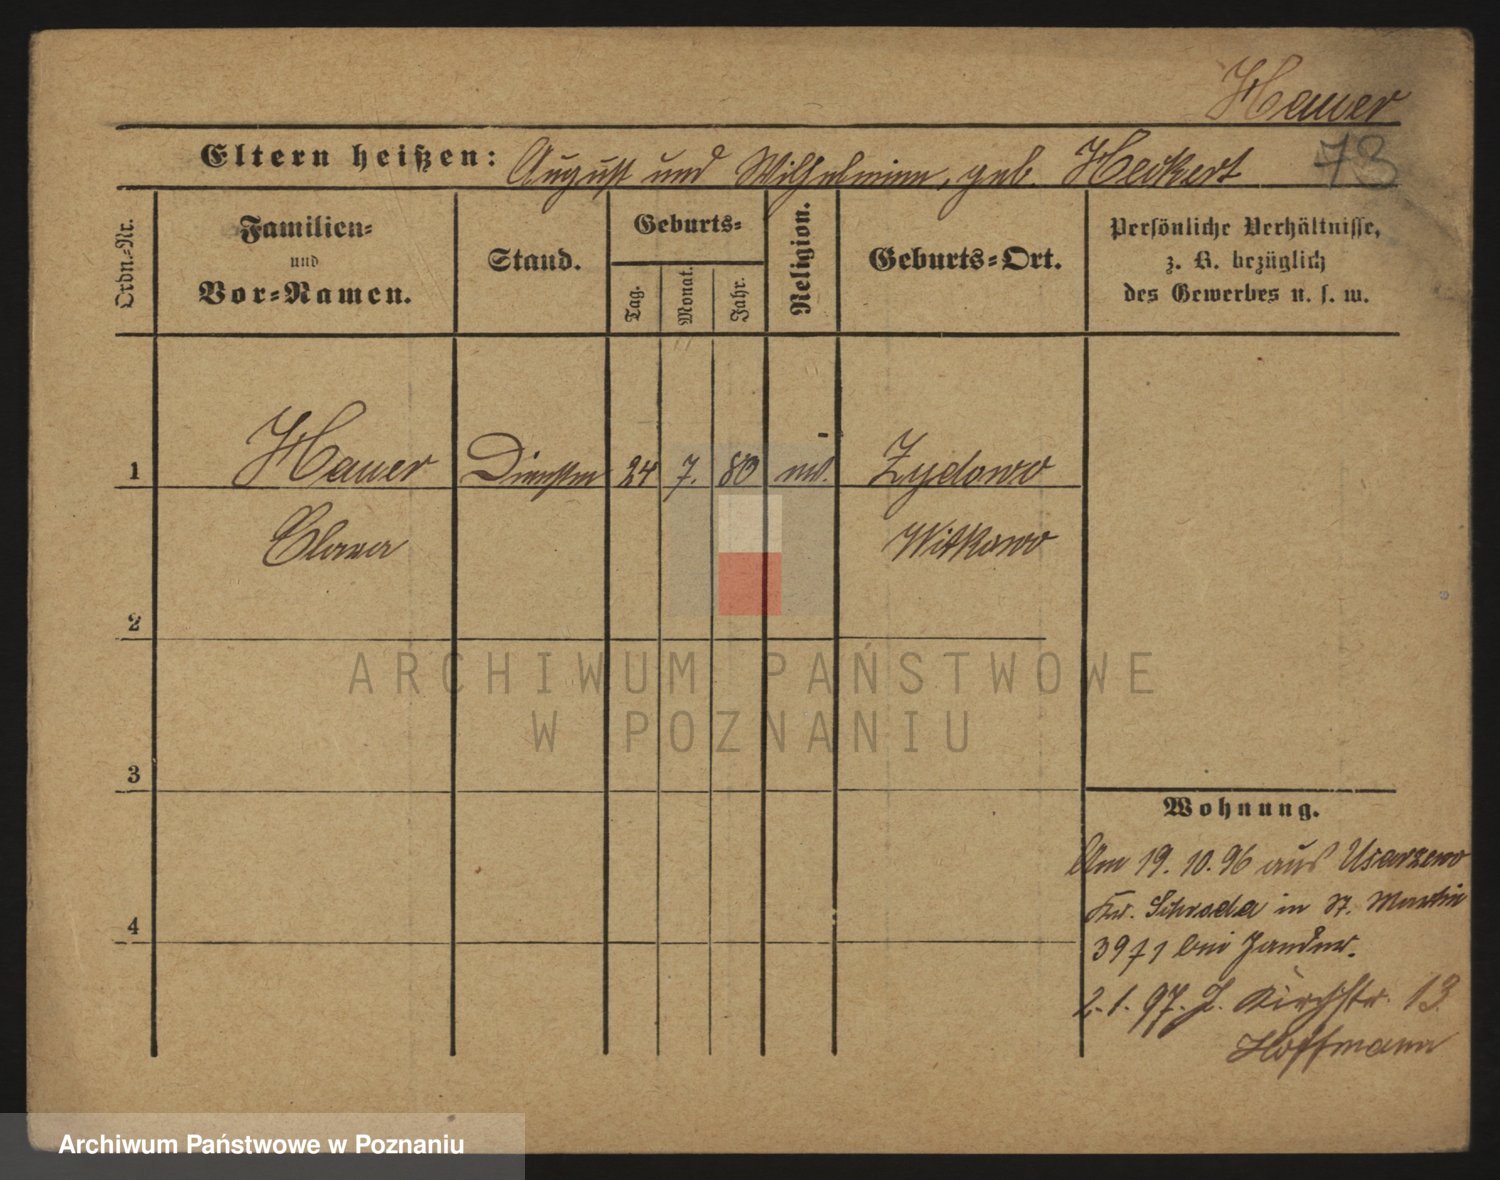 Hauer
Eltern heißen: August und Wilhelmine, geb. Heckert
73
Ordn.-Nr.
Familien-
und
Vor-Namen.
Stand.
Geburts-
Tag.
Monat.
Jahr.
Religion.
Geburts-Ort.
Persönliche Verhältnisse,
z. B. bezüglich
des Gewerbes u. s. w.
1 Hauer 24 7. 80 Zydowo
Clara Witkowo
2
3
4
ARCHIWUM PAŃSTWOWE
W POZNANIU
Wohnung.
Am 19. 10. 96 aus Usarzewo
Kr. Schroda in St. Martin
bei
2. 1. 97. J. Kirchstr. 13
Hoffmann
Archiwum Państwowe w Poznaniu